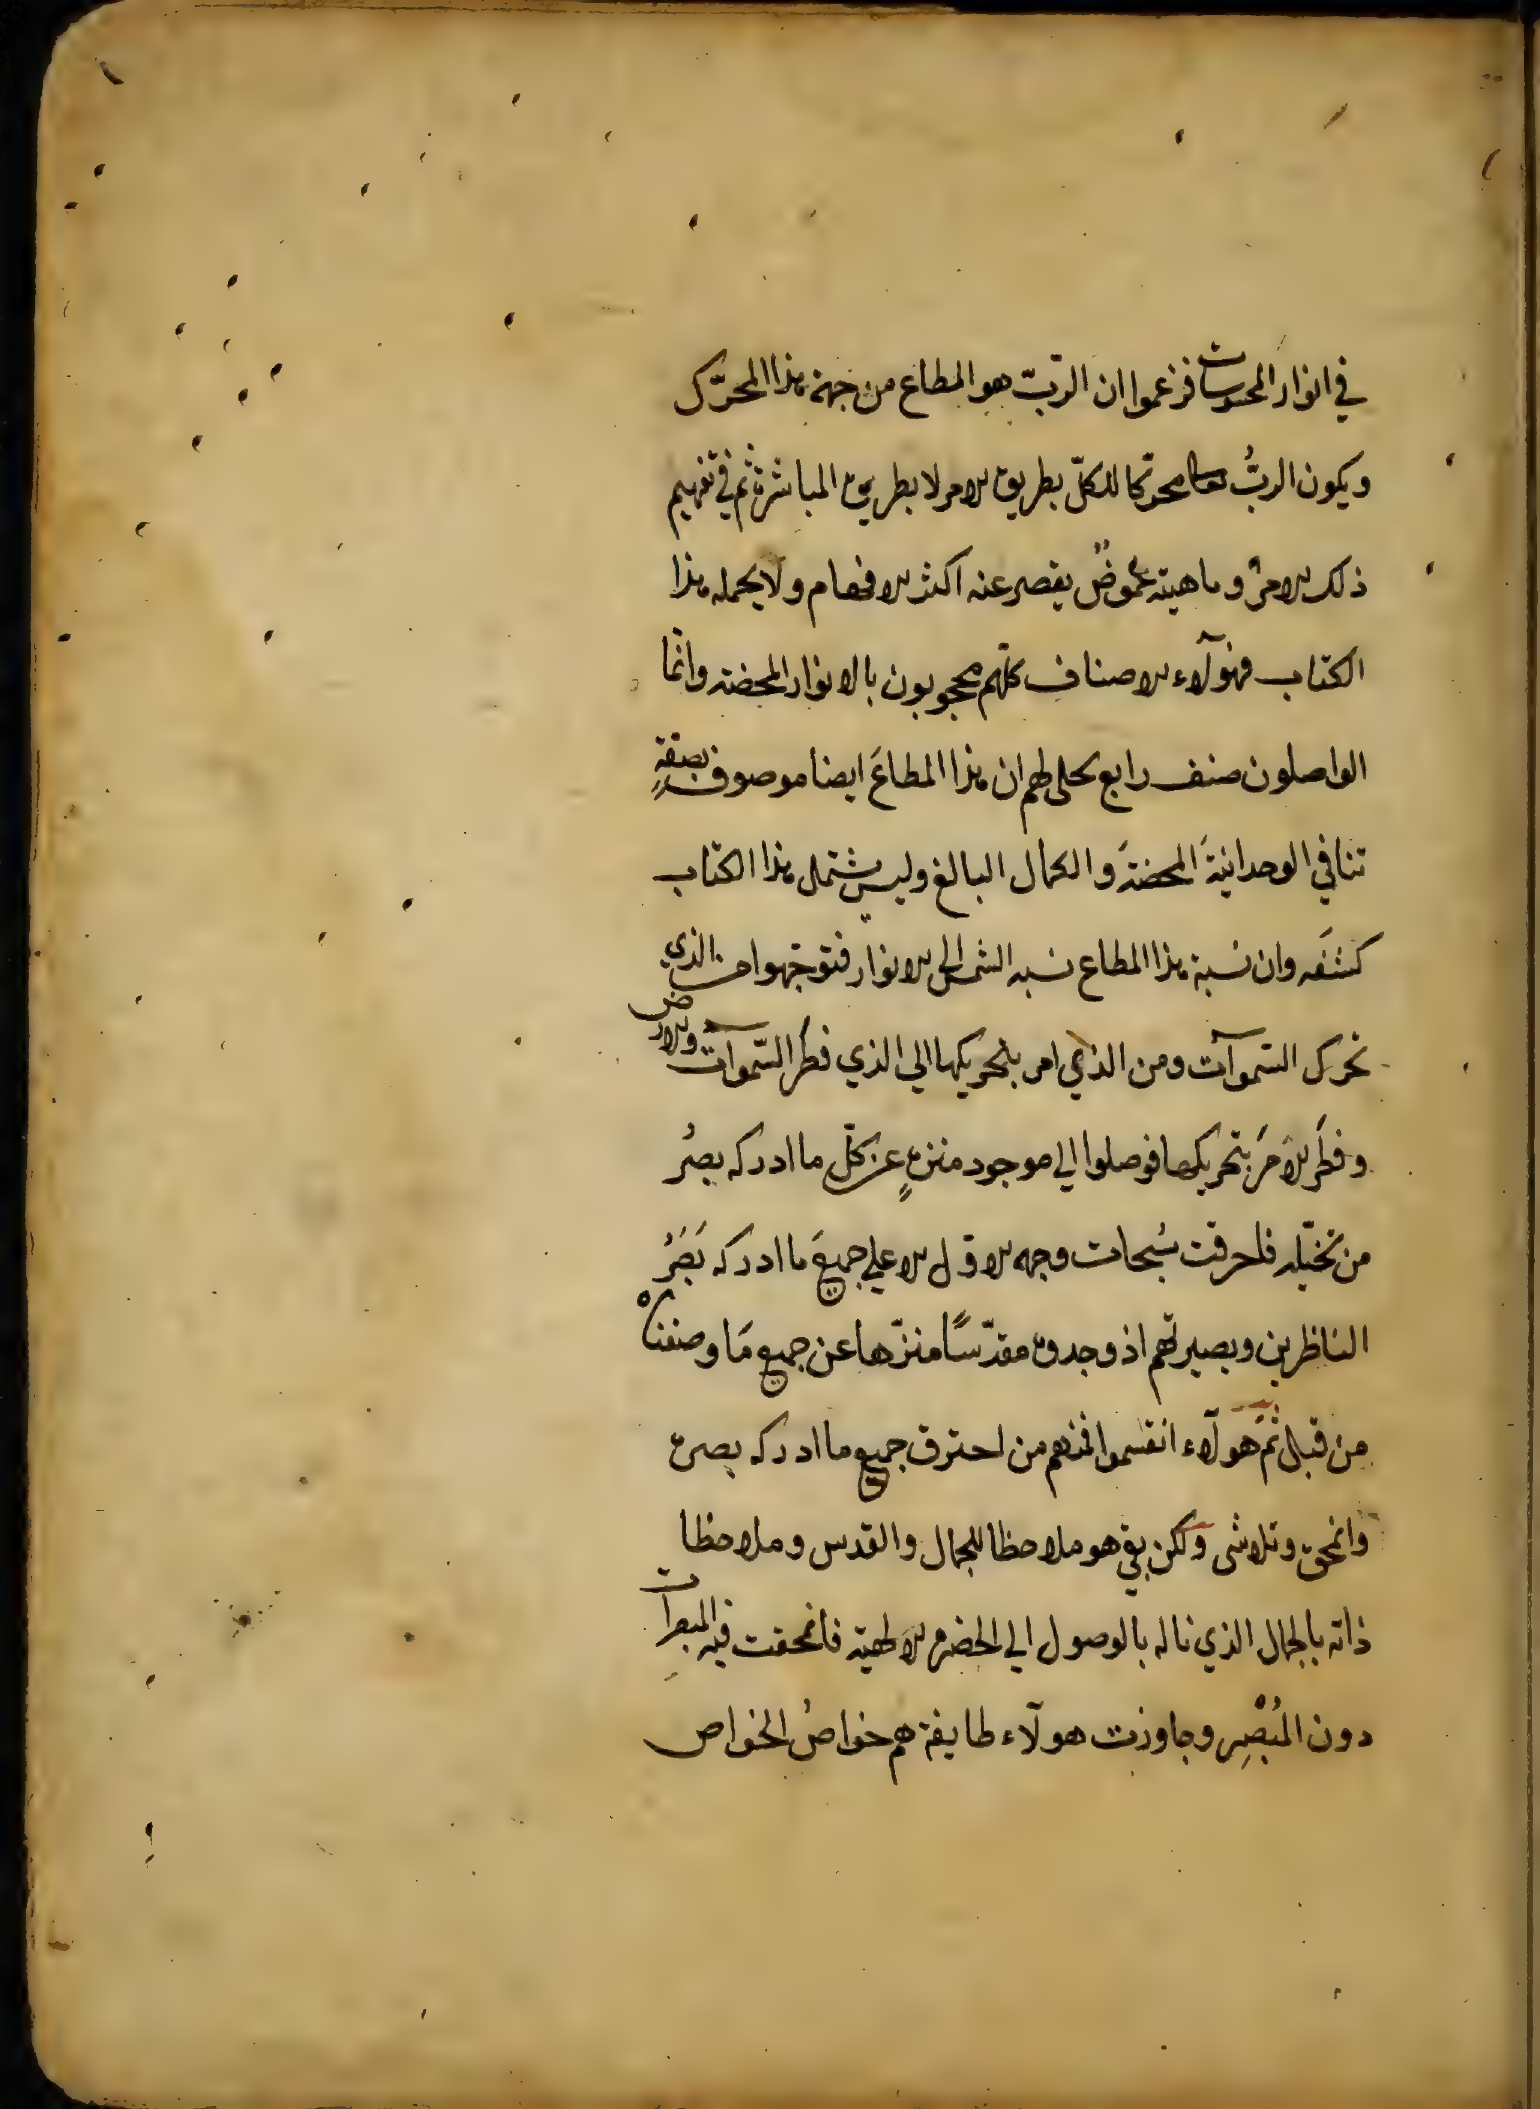 في انوار المحسوسات فزعموا ان الربّ هو المطاع من جهة هذا المحرّك
ويكون الربُّ تعالى محرّكا للكلّ بطريق الامر لا بطريق المباشرة ثم في تفهيم
ذلك الامر وماهيته غموضٌ يقصر عنه اكثر الافهام ولا يحمله هذا
الكتاب فهؤلآء الاصناف كلّهم محجوبون بالانوار المحضة وانّما
الواصلون صنف رابع تجلى لهم ان هذا المطاعَ ايضا موصوف بصفةٍ
تنافي الوحدانيّةَ المحضةَ والكمال البالغ وليس يشتمل هذا الكتاب
كشفَه وان نسبة هذا المطاع نسبة الشمس الى الانوار فتوجّهوا من الذي
تحرك السّموآت ومن الذي امر بتحريكها الي الذي فطر السّموآت والارض
وفطَر الآمرَ بتحريكها فوصلوا الي موجود منزهٍ عن كلّ ما ادركه بصرُ
من تخيّله فاحرقت سُبحات وجهه الاوّل الاعلي جميعَ ما ادركه بَصَرُ
الناظرين وبصيرتهم اذ وجدوه مقدّسًا منزّها عن جميع مَا وصفناه
من قبل ثمّ هولآء انقسموا فمنهم من احترق جميع ما ادركه بصره
وانمحق وتلاشى ولكن بقي هو ملاحظا للجمال والقدس وملاحظا
ذاته بالجمال الذي ناله بالوصول الي الحضرة الالهية فانمحقت فيه المبصرات
دون المُبْصِر وجاوزت هولآء طايفة هم خواصُ الخواص